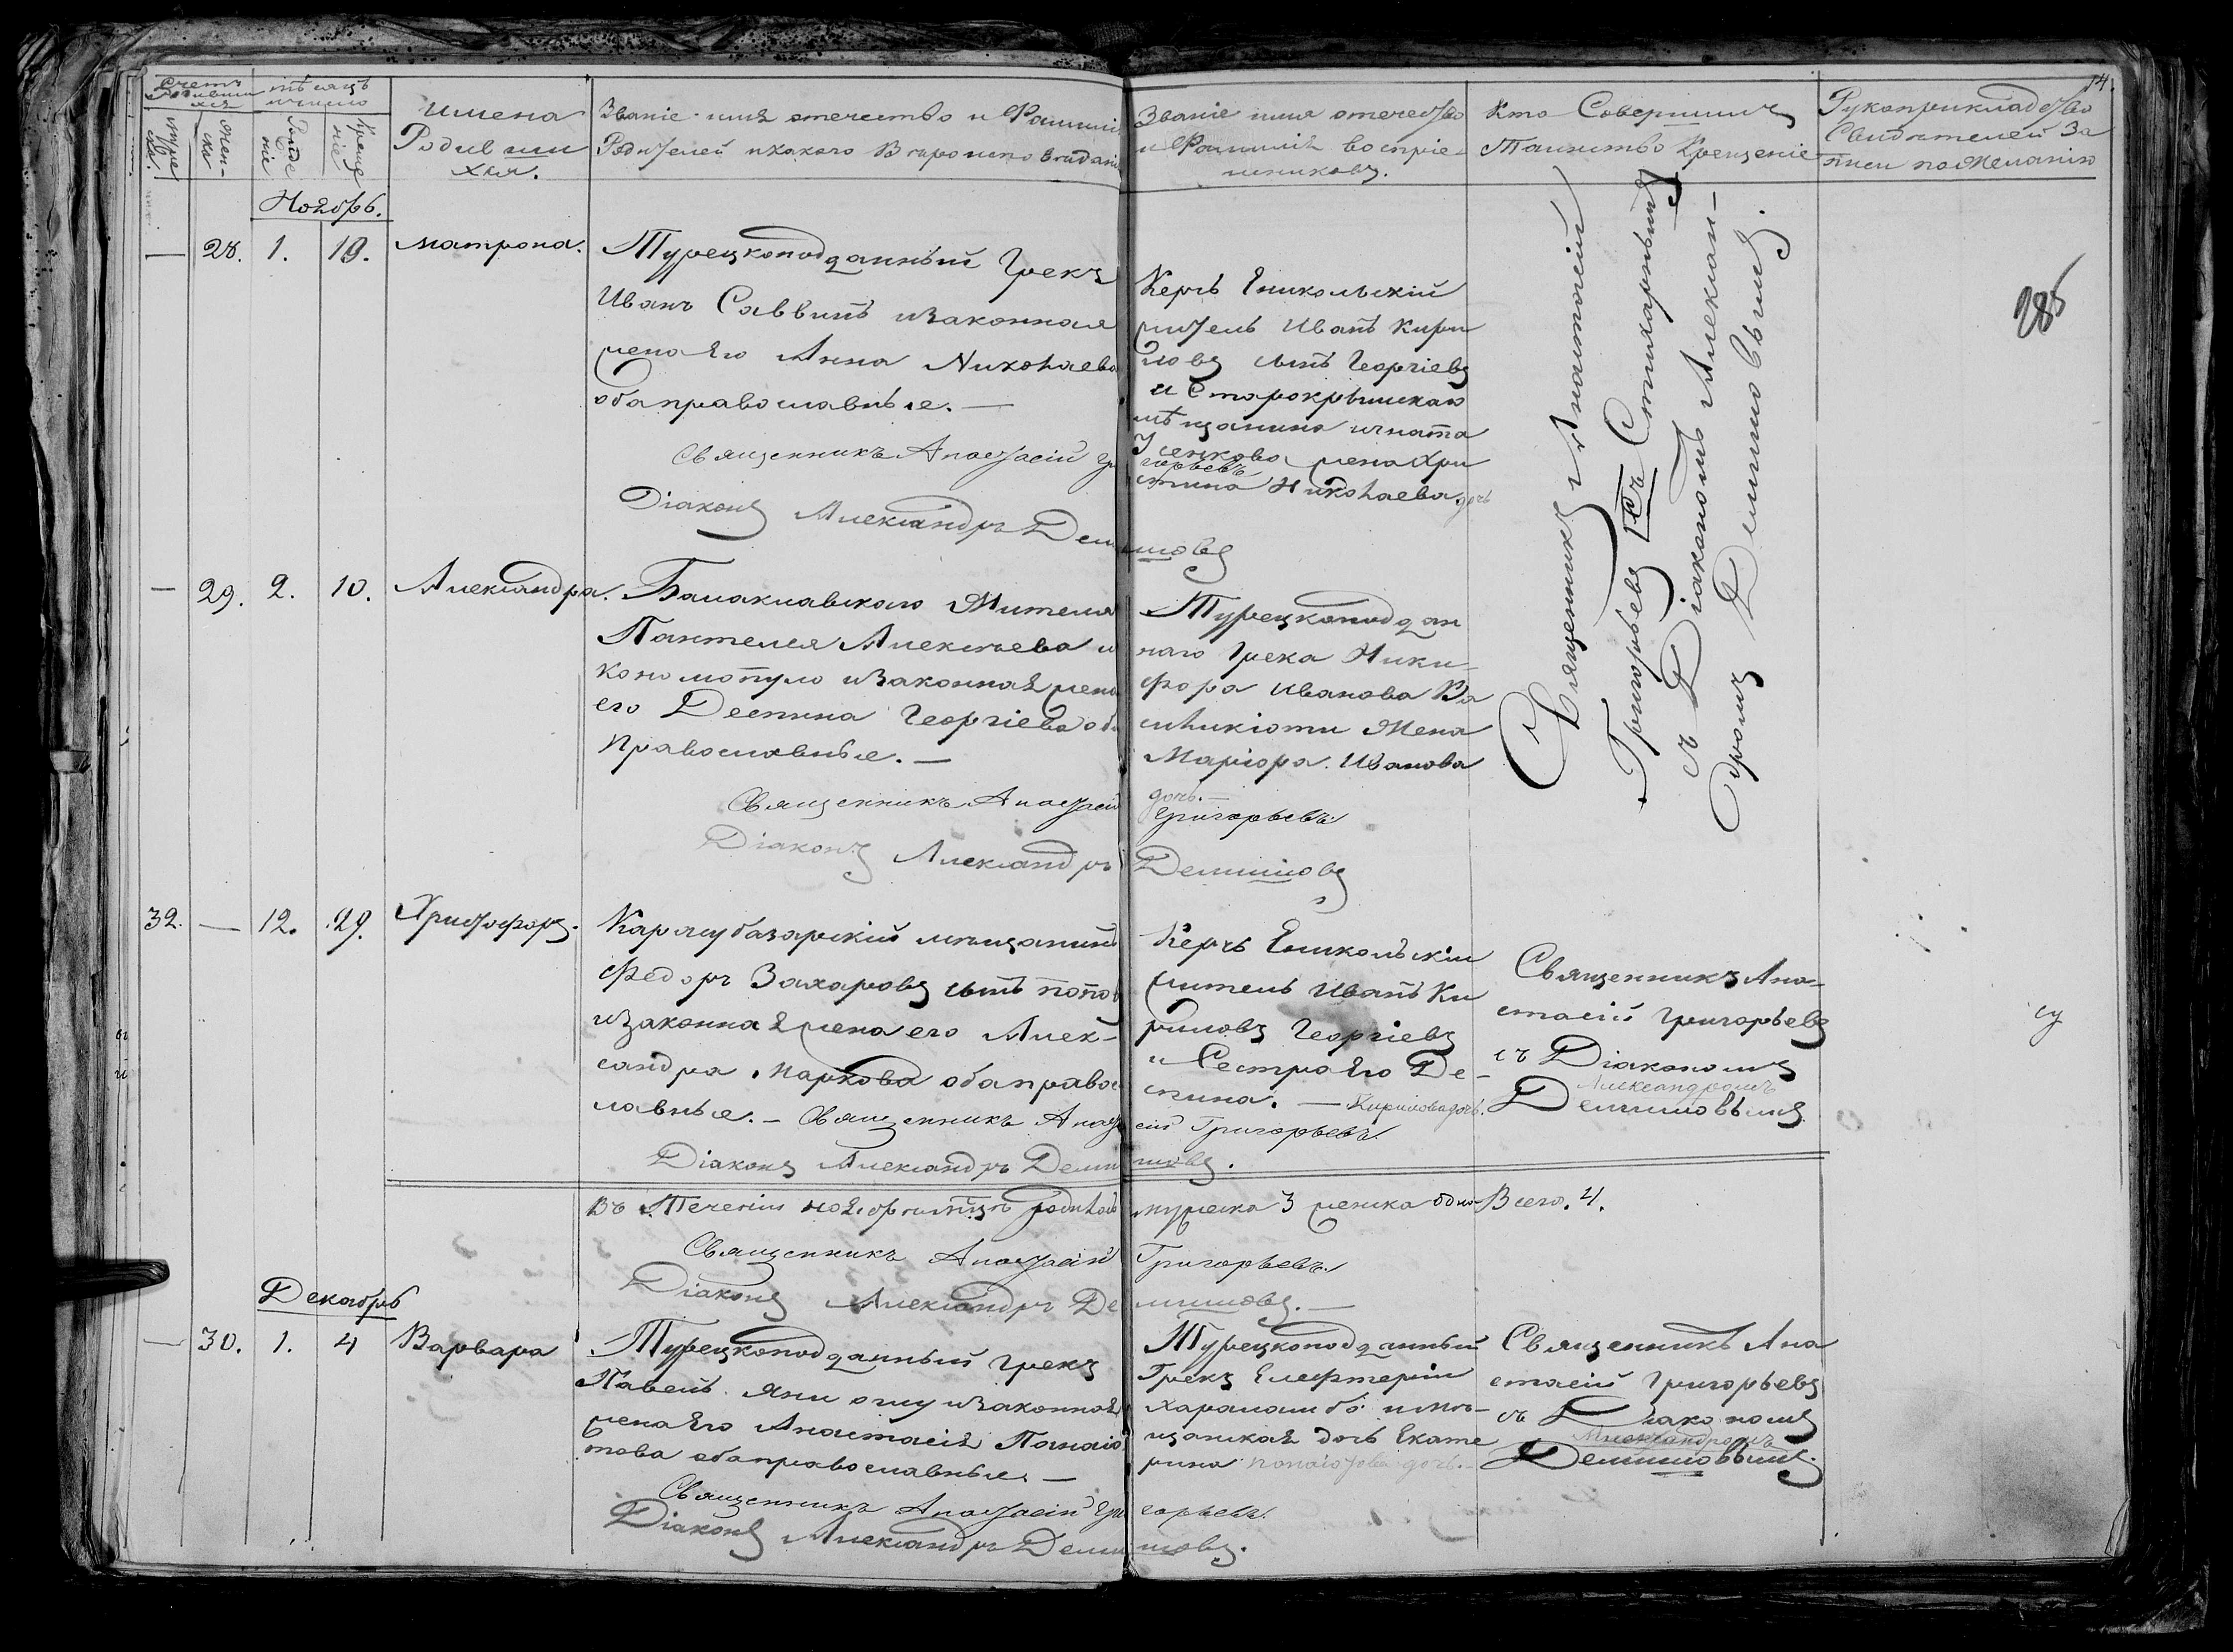 14.
Счетъ Родившихся
мѣсяцъ и число
мужескъ.
женска.
Рожденіе
Крещеніе
Имена
Родивши
хся.
Званіе имя отечество и Фамилія
Родителей и какого Вѣроисповѣданія
Званіе имя отечество
и Фамилія воспріе-
мниковъ.
Кто Совершилъ
Таинство Крещеніе
Рукоприкладство
Свидѣтелей За
писи по Желанію
Ноябрь.
— 28. 1. 19. Матрона.
Турецкоподданный Грекъ
Иванъ Саввинъ и законная
жена Его Анна Николаева
оба православные. —
Священникъ Анастасій Гри
горьевъ
Діаконъ Александръ Деми
шовъ
Керчь Еникольскій
житель Иванъ Кири
ловъ сынъ Георгіевъ
и Старокрымскаго
мѣщанина Игната
жена Хри
стина Николаева дочь
Священникъ Анастасій
Григорьевъ Съ Стихарнымъ
съ Діакономъ Алексан-
дромъ Демишовымъ.
285
— 29. 2. 10. Александра.
Балаклавскаго Жителя
Пантелея Алексѣева и
кономопуло и законная жена
его Деспина Георгіева оба
Православные. —
Священникъ Анастасій
Григорьевъ
Діаконъ Александръ
Демишовъ
Турецкоподдан
наго Грека Ники-
фора Иванова Ва
силикіоти Жена
Маріора Иванова
дочь. —
32. — 12. 29. Христофоръ.
Карасубазарскій мѣщанинъ
Федоръ Захаровъ сынъ Попов
и законная жена его Алек-
сандра Маркова оба правос
лавные. — Священникъ Анаст
асій Григорьевъ
Діаконъ Александръ Деми
шовъ.
Керчь Еникольскій
житель Иванъ Ки
риловъ Георгіевъ
и Сестра Его Де-
спина. — Кирилова дочь.
Священникъ Ана-
стасій Григорьевъ
съ Діакономъ
Александромъ
Демишовымъ
Въ Теченіи ноября мѣсяцъ родилось мужеска 3 женска одна Всего. 4.
Священникъ Анастасій Григорьевъ.
Діаконъ Александръ Де мишовъ. —
Декабрь
— 30. 1. 4 Варвара
Турецкоподданный Грекъ
Павелъ Яни оглу и законная
жена Его Анастасія Панаіо
това оба православные. —
Священникъ Анастасій Гри
горьевъ.
Діаконъ Александръ Деми
шовъ.
Турецкоподданный
Грекъ Елефтерій
Харалambо и мѣ-
щанская дочь Екате
рина Панаіотова дочь. —
Священникъ Ана
стасій Григорьевъ
съ Діакономъ
Александромъ
Демишовымъ.